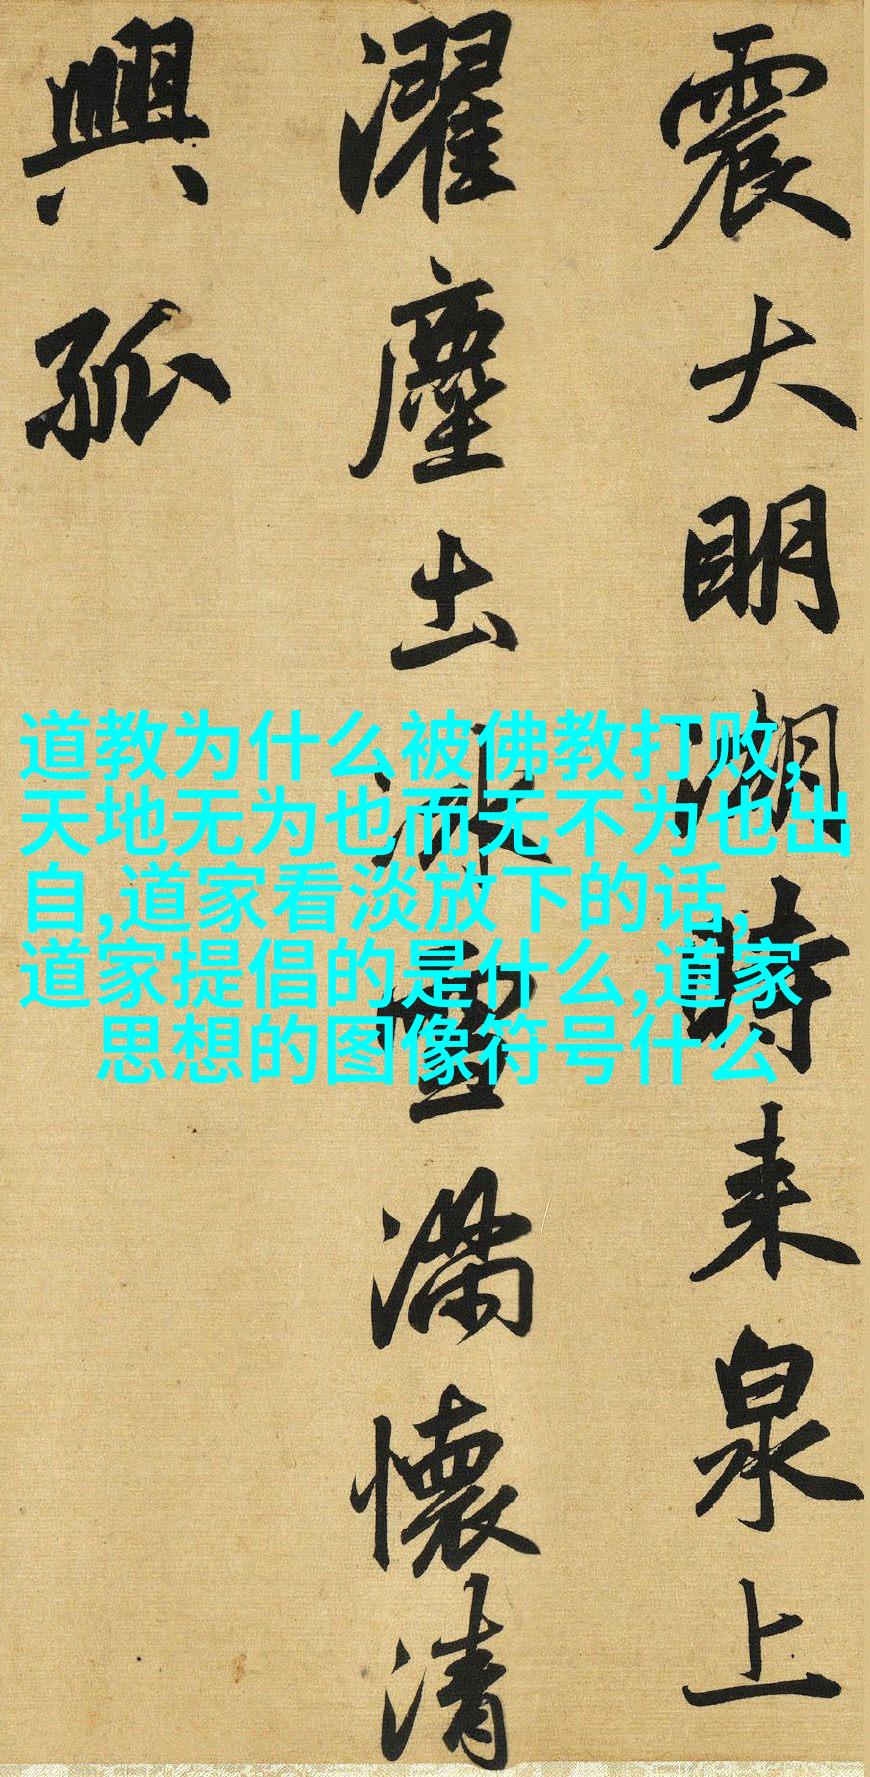 震大明湖時来泉上
濯塵土冰雪滿懷清
興孤
道教为什么被佛教打败,
天地无为也而无不为也出
自,道家看淡放下的话,
道家提倡的是什么,道家
思想的图像符号什么